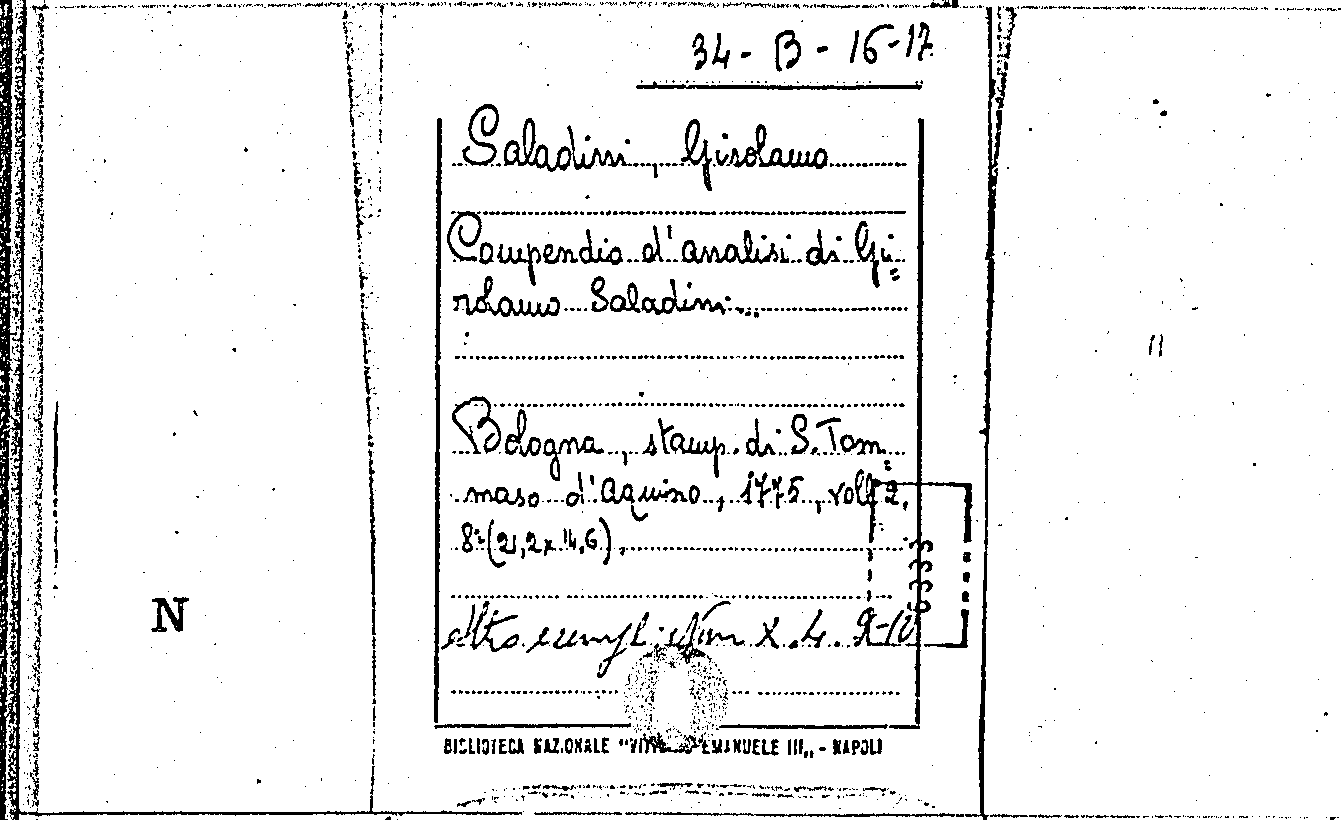 34-B-16-17
Saladini, Girolamo
Compendio d'analisi di Gi=
rolamo Saladini...
Bologna, stamp. di S. Tom=
maso d'Aquino, 1775, voll 2,
8º (21,2 x 14,6).
altro esempl.
N
BIBLIOTECA NAZIONALE "VITTORIO EMANUELE III„ - NAPOLI